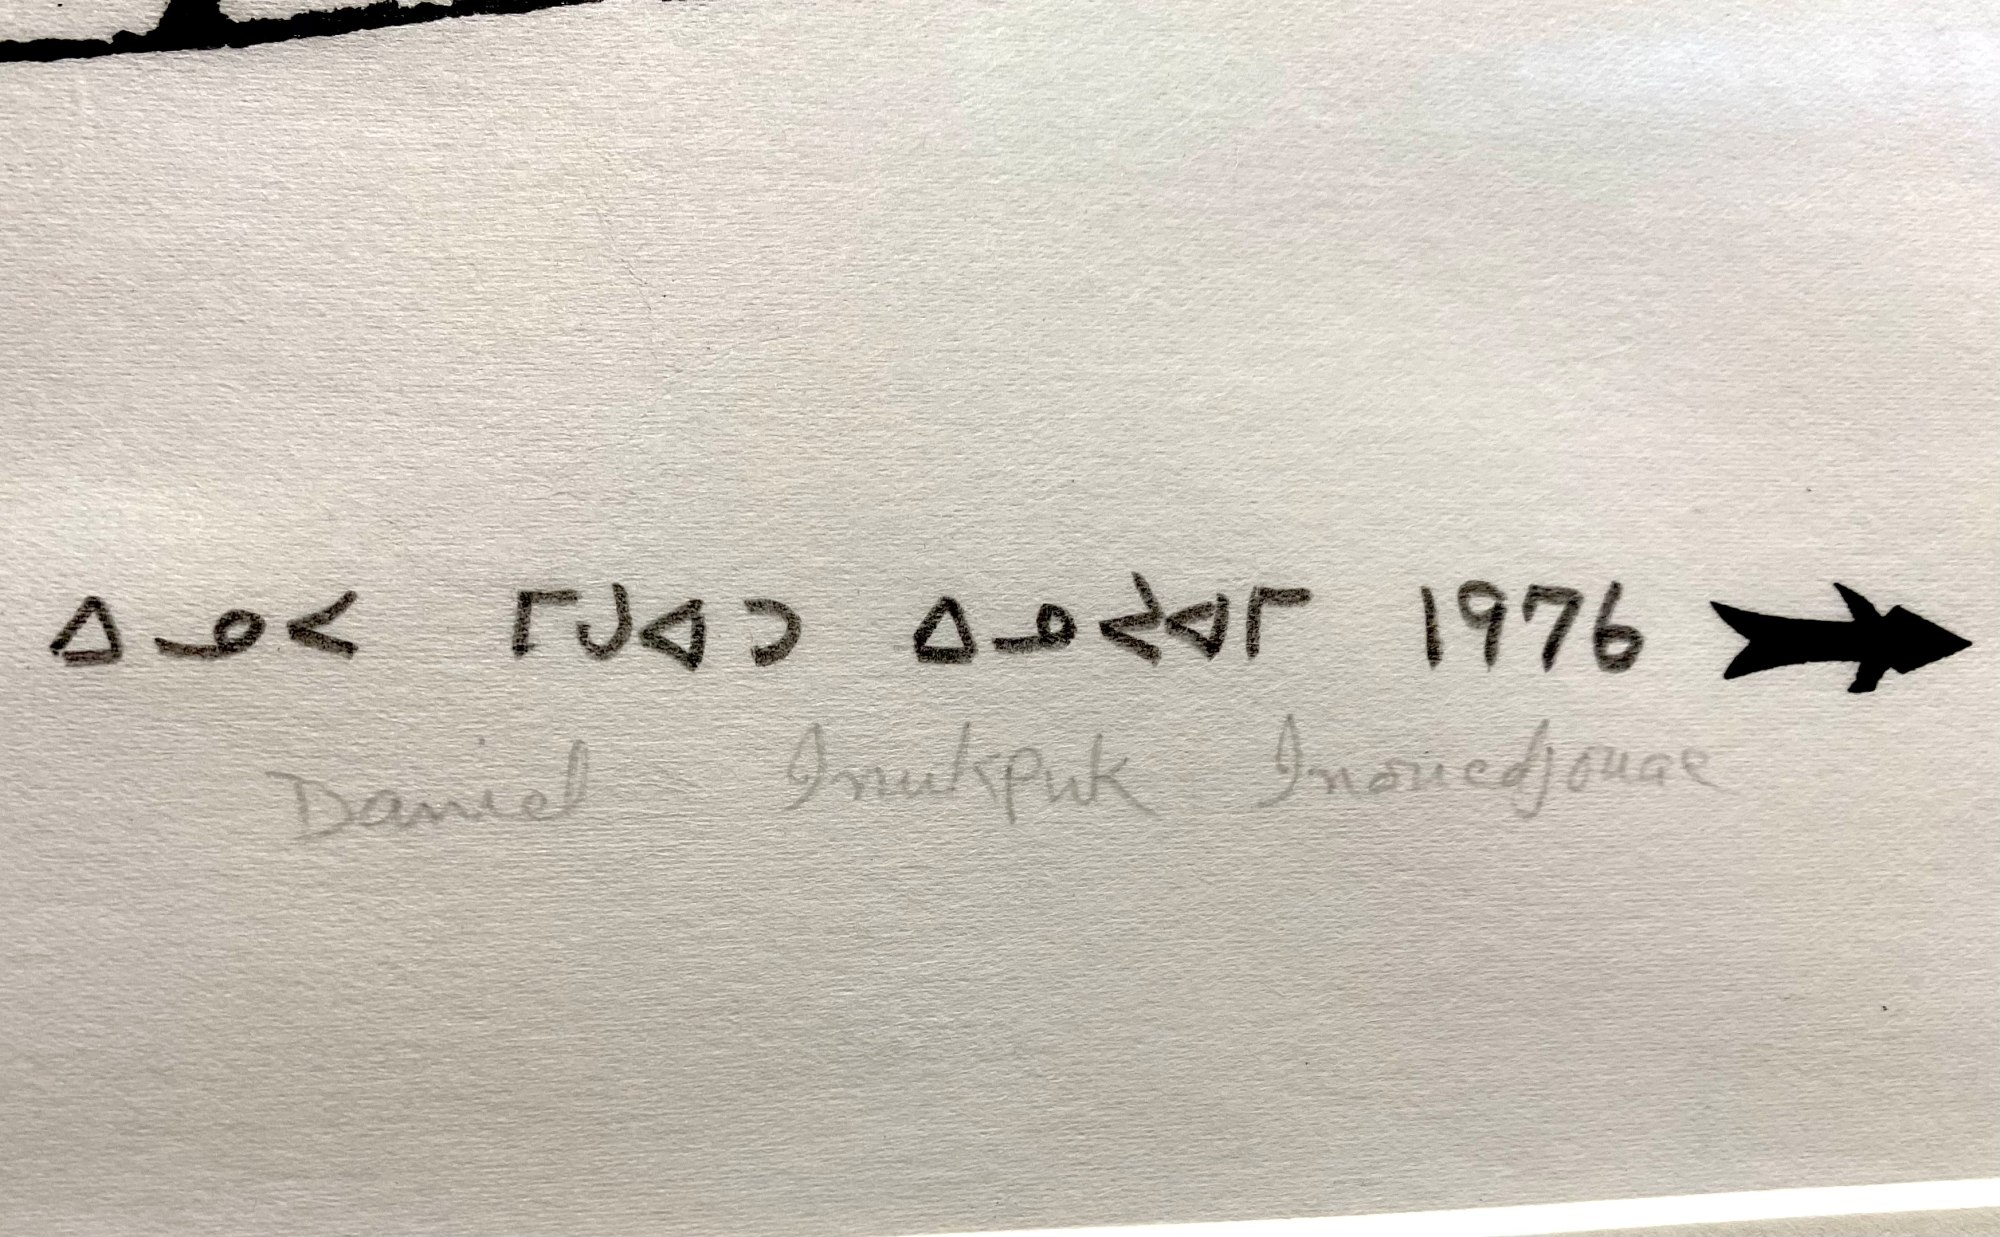 ᐃᓄᐸ ᒥᒍᐊᑐ ᐃᓄᐸᔭᐊᒥ 1976
Daniel Inukpuk Inoucdjouac